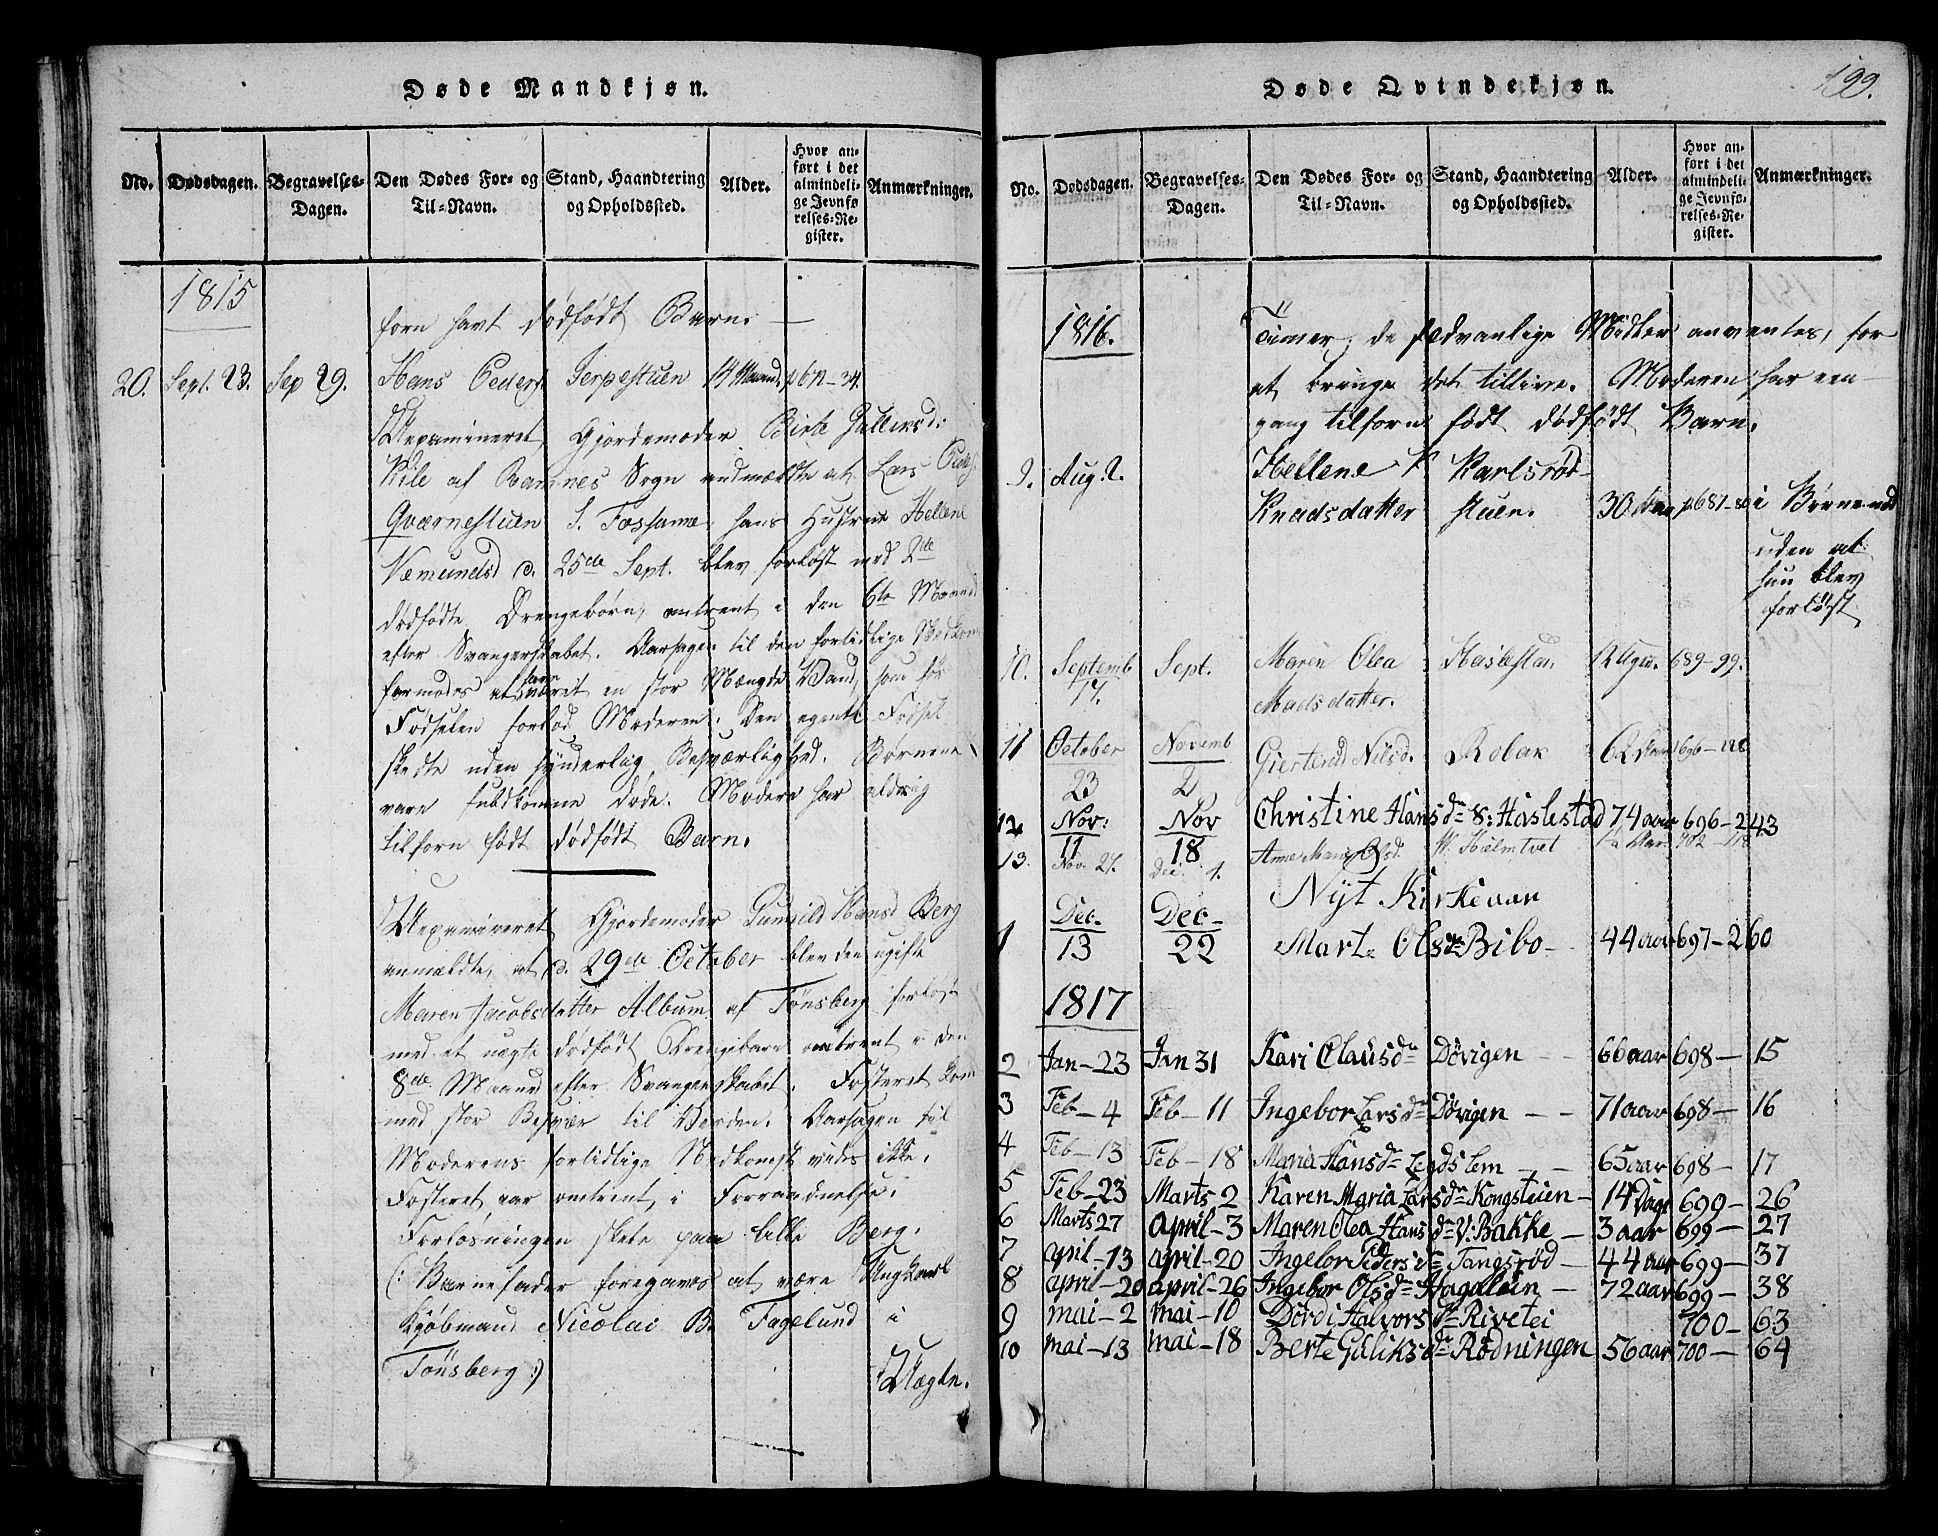 Døde Mandkjøn.
No. Dødsdagen. Begravelses-Dagen. Den Dødes For- og Til-Navn. Stand, Haandtering og Opholdssted. Alder. Hvor anført i det almindelige Jevnførelses-Register. Anmærkninger.
1815
forn havt dødfødt Barn. —
20. Sept. 23. Sep 29. Hans Peders. 14 Maand. p 67
Uexamineret Gjordemoder Birte
af Ramnes Sogn anmeldte at Lars Peders.
Qværnestuen S. Fossame hans Hustrue Hellene
d. 25de Sept. blev forløst med 2de
dødfødte Drengebørn, omtrent i den 6te Maaned
efter Svangerskabet. Aarsagen til den fortidlige Nedkomst
formodes at have været en stor Mængde Vand, som før
Fødselen forlod Moderen. Den egentl. Fødsel
skedte uden synderlig Besværlighed. Børnene
vare fuldkomne døde. Modern har aldrig
tilforn født dødfødt Barn.
Uexamineret Gjordemoder Gunild Hansd Berg
anmeldte, at d. 29de October blev den ugifte
Maren Jacobsdatter Album af Tønsberg forløst
med et uægte dødfødt Drengebarn omtrent i den
8de Maaned efter Svangerskabet. Fosteret kom
med stor Besvær til Verden. Aarsagen til
Moderens fortidlige Nedkomst vides ikke.
Fosteret var omtrent i Forraadnelse.
Forløsningen skete paa lille Berg.
(: Barnefader foregaves at være Ungkarl
Kjøbmand Nicolai B. Fagelund i
Tønsberg :)
Uægte.
Døde Qvindekjøn.
199.
No. Dødsdagen. Begravelses-Dagen. Den Dødes For- og Til-Navn. Stand, Haandtering og Opholdssted. Alder. Hvor anført i det almindelige Jevnførelses-Register. Anmærkninger.
1816.
Timer, de sædvanlige Midler anventes, for
at bringe det tillive. Moderen har een
gang tilforn født dødfødt Barn.
9. Aug. 2. Hellene Karlsrød-
Knudsdatter stuen. 30 Aar p 687-80 i Barnenød
uden at
hun blev
forløst
10. Septemb Sept. Maren Olea 12 Uger. 689-99.
17. Madsdatter.
11 October Novemb Giertrud Nilsd. Robak 62 Aar 696
23 2
12 Nov: Nov Christine Hans dr S: Haslestad 74 aar 696-243
11 18
13. Nov. 27. Dec. 1. Anne Marie Olsd. Hielmtvet 702
Nyt Kirkeaar
1 Dec- Dec- Mart Ols dr Bibo- 44 aar 697-260
13 22
1817
2 Jan-23 Jan 31 Kari Claus dr Døvigen - - 66 aar 698- 15
3 Feb-4 Feb-11 Ingebor Lars dr Døvigen - - 71 aar 698- 16
4 Feb-13 Feb-18 Maria Hans dr Legdslem - - 65 aar 698- 17
5 Feb-23 Marts-2 Karen Maria Lars dr Kongsteien- 14 Dage 699- 26
6 Marts 27 april-3 Maren Olea Hans dr V: Bakke- 3 aar 699- 27
7 april-13 april-20 Ingebor Peders dr Tangsrød- 44 aar 699- 37
8 april-20 april-26 Ingebor Ols dr Hagalleien- 72 aar 699- 38
9 mai-2 mai-10 Dordi Halvors dr Rivetei 700- 63
10 mai-13 mai-18 Berte Guliks dr Rødningen 56 aar 700- 64